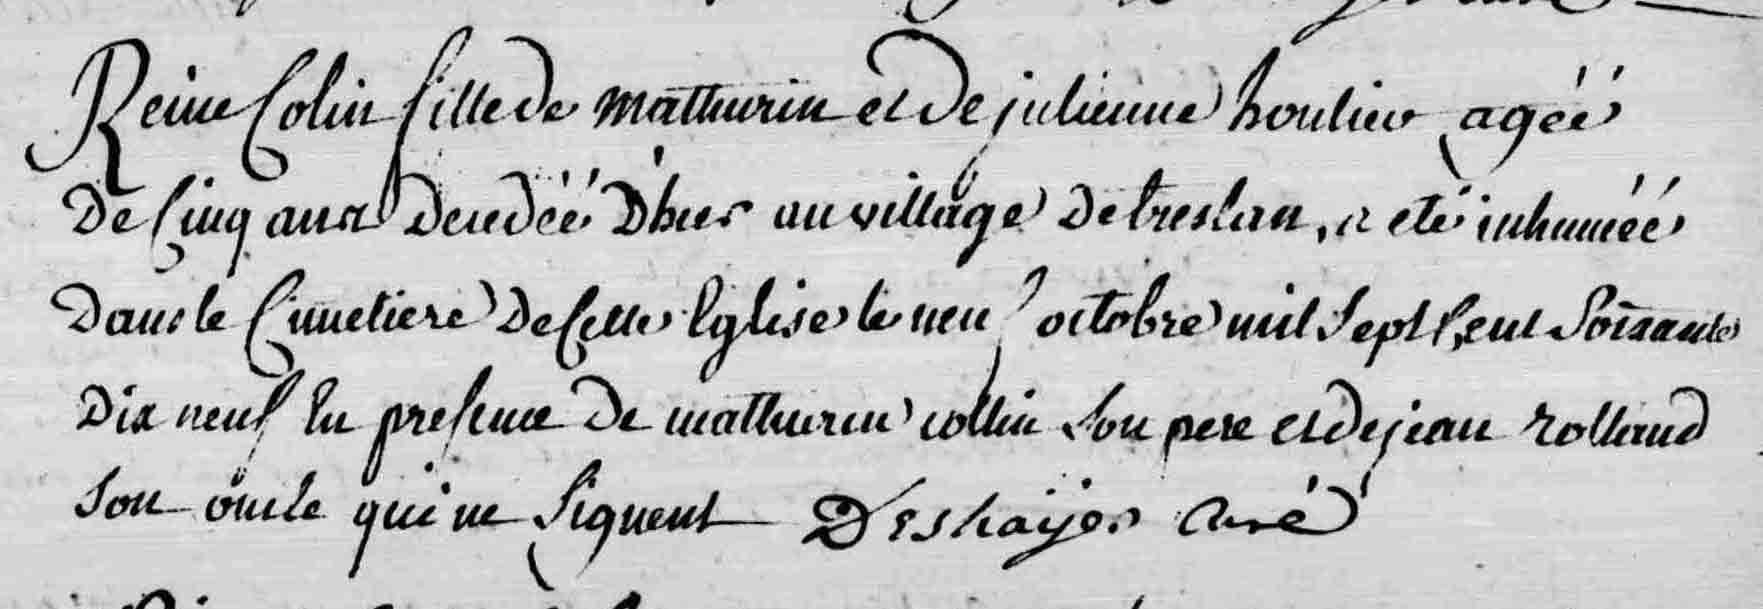 Reine Colin fille de mathurin et de julienne houlier agéé
De Cinq ans Decedéé D'hier au village De treslan, a eté inhuméé
Dans le Cimetiere De Cette Eglise le neuf octobre mil Sept Cent Soixante
Dix neuf En presence De mathurin collin Son pere et de jean rolland
Son oncle qui ne Signent Deshaijes Curé